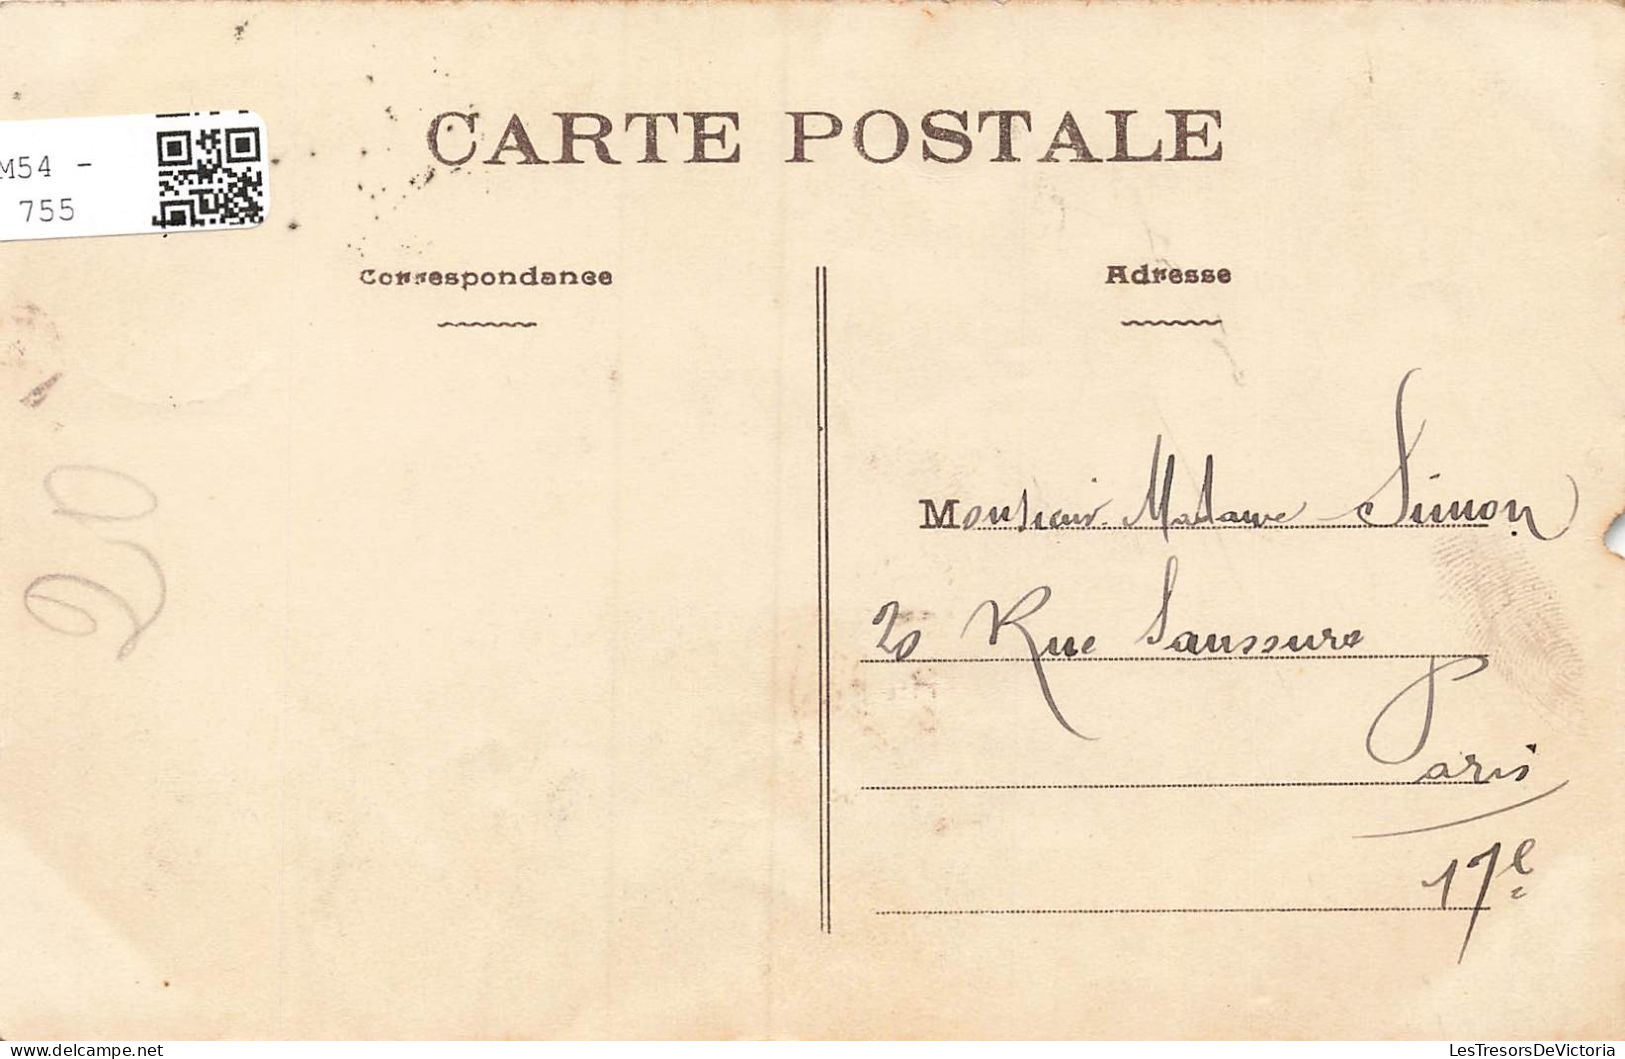 CARTE POSTALE
M54 -
755
Correspondance
Adresse
Monsieur Madame Simon
20 Rue Saussure
Paris
17e
20
delcampe.net
LesTresorsDeVictoria